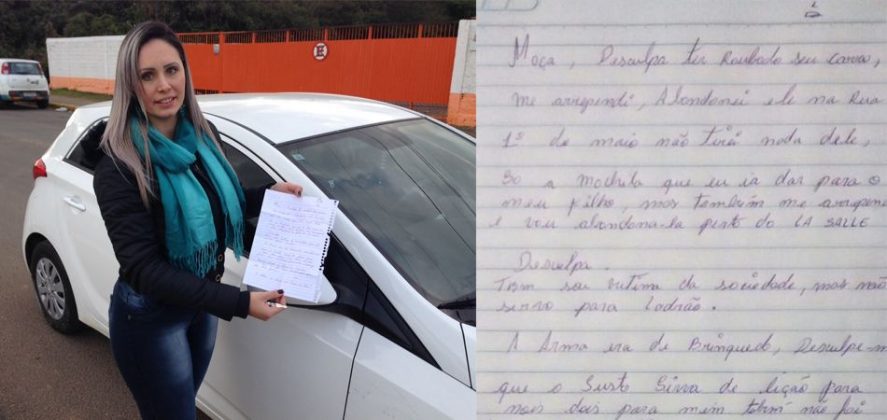 Moça, Desculpa ter Roubado seu carro,
me arrependi, Abandonei ele na Rua
1º de maio não tirei nada dele,
So a mochila que eu ia dar para o
meu filho, mas também me arrependi
e vou abandona-la perto do LA SALLE
Desculpa.
Tbm sou vitima da sociedade, mas não
sirvo para Ladrão.
A Arma era de Brinquedo, Desculpe-m
que o Susto Sirva de lição para
nois dois para mim tbém não foi